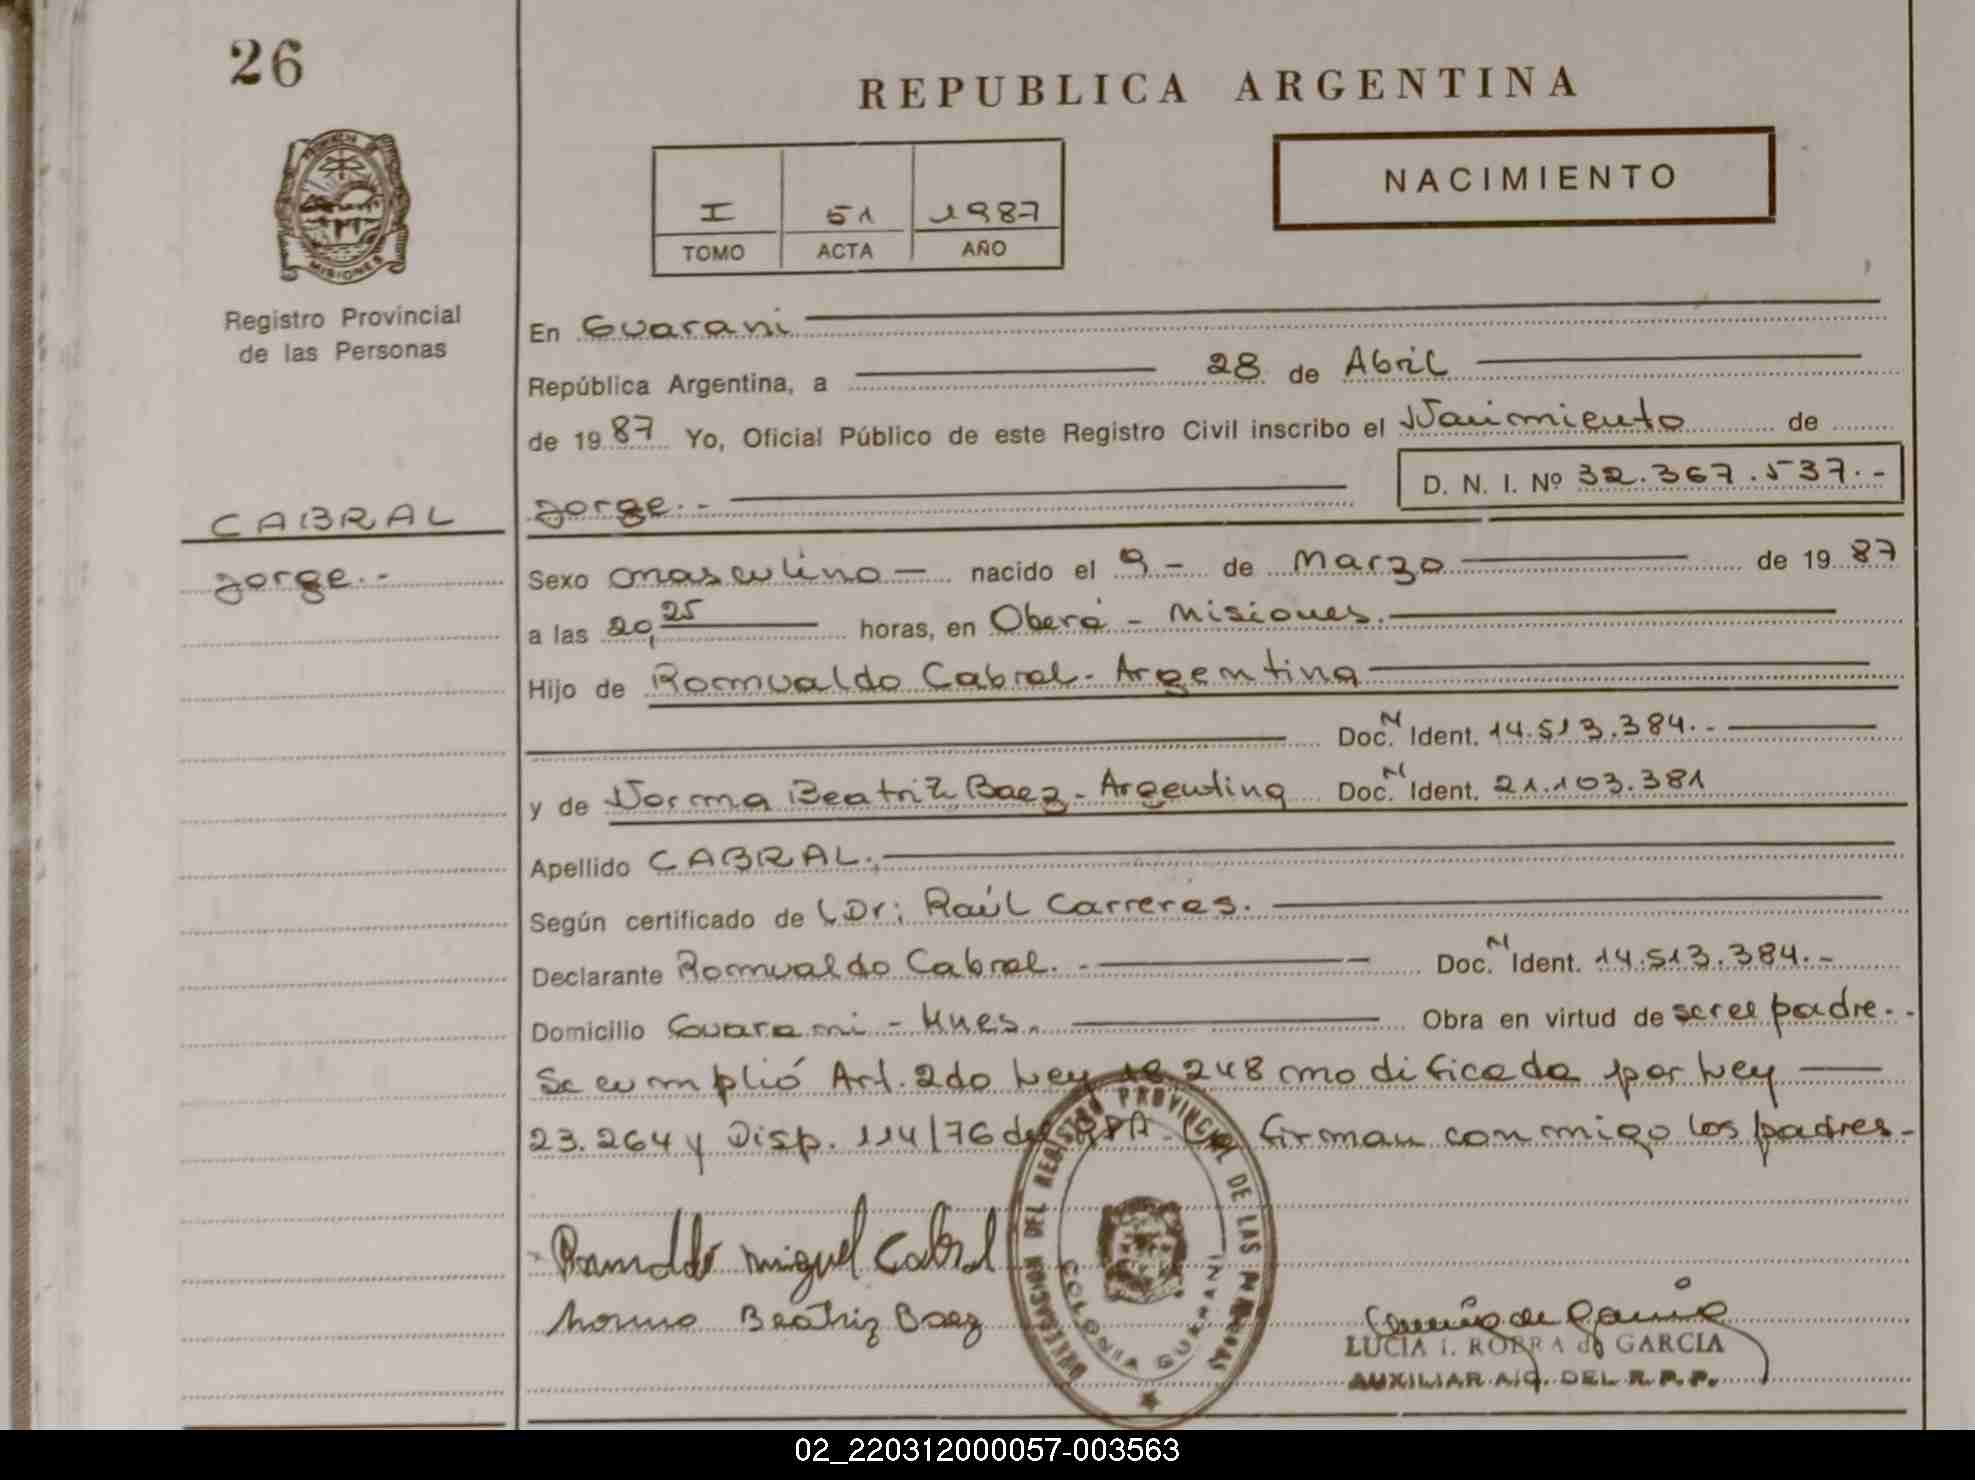 26
REPUBLICA ARGENTINA
NACIMIENTO
I 51 1987
TOMO ACTA AÑO
MISIONES
Registro Provincial
de las Personas
En Guarani
República Argentina, a 28 de Abril
de 1987 Yo, Oficial Público de este Registro Civil inscribo el Nacimiento de
D. N. I. Nº 32.367.537.-
CABRAL
Jorge.-
Jorge.-
Sexo masculino - nacido el 9 - de Marzo de 1987
a las 20,25 horas, en Oberá - Misiones.
Hijo de Romualdo Cabral - Argentina
Doc. N Ident. 14.513.384.-
y de Norma Beatriz Baez - Argentina Doc. N Ident. 21.103.381
Apellido CABRAL.
Según certificado de Dr: Raúl Carreras.
Declarante Romualdo Cabral.- Doc. N Ident. 14.513.384.-
Domicilio Guarani - Mnes. Obra en virtud de ser el padre.-
Se cumplió Art. 2do Ley 18.248 modificada por Ley
23.264 y Disp. 114/76 del firman conmigo los padres-
Miguel Cabral
Norma Beatriz Baez
DELEGACION DEL REGISTRO PROVINCIAL DE LAS PERSONAS
COLONIA GUARANI
LUCIA I. de GARCIA
AUXILIAR A/C. DEL R.P.P.
02_220312000057-003563